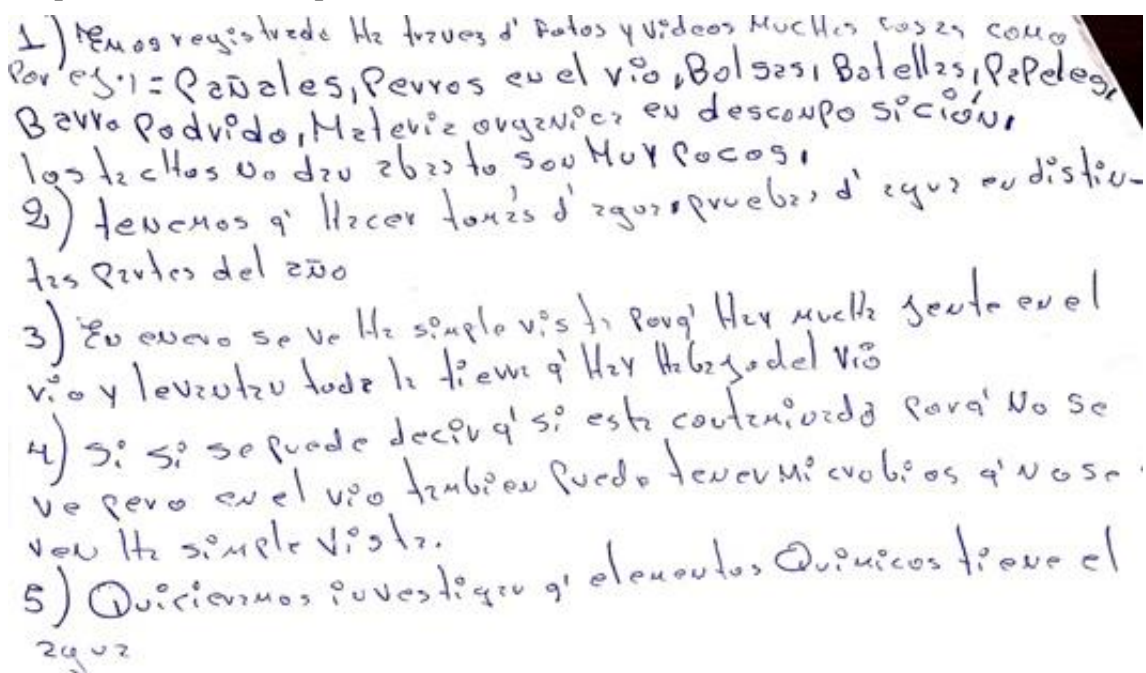 1) Emos registrado Ha travez d' Fotos y videos Muchas cosas como
Por ej.: = Pañales, Perros en el río, Bolsas, Botellas, PaPeles,
Barro Podrido, Materia organica en descomposición,
los tachos no dan abasto son Muy Pocos,
2) tenemos q' Hacer tomas d' agua, pruebas d' agua en distin-
tas Partes del año
3) En enero se ve Ha simple vista Porq' Hay mucha Jente en el
río y levantan toda la tierra q' Hay Habajo del río
4) Si si se puede decir q' si esta contaminada Porq' No se
ve pero en el río tambien Puede tener microbios q' no se
ven Ha simple vista.
5) Quicieramos investigar q' elementos Quimicos tiene el
agua